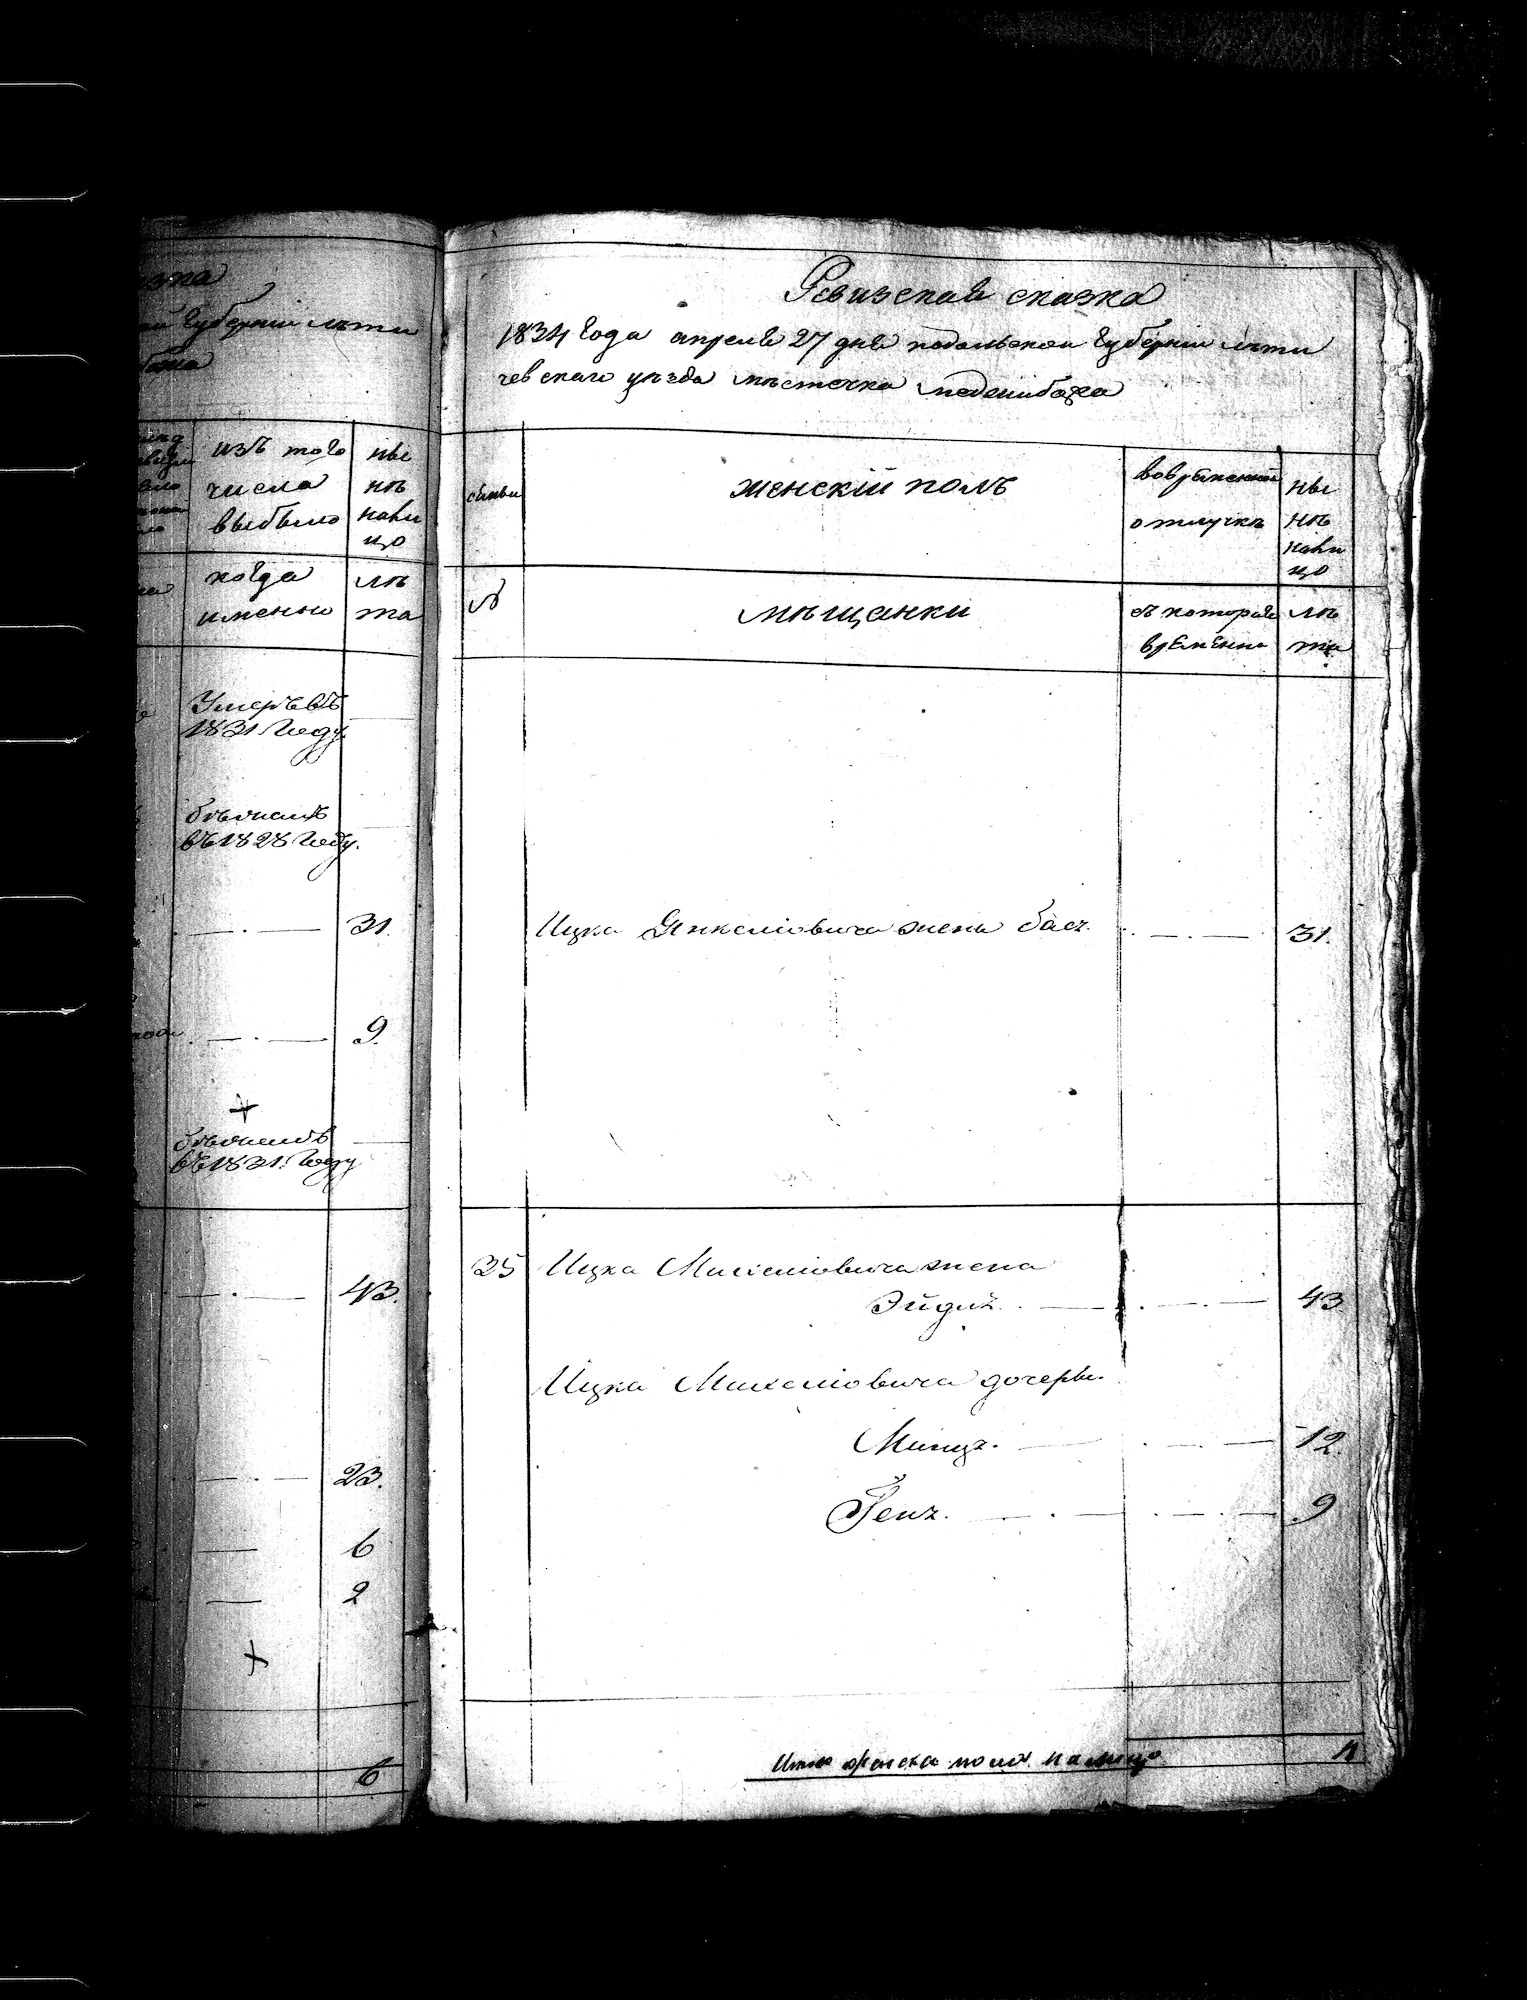 губерніи лѣти
изъ того
числа
выбыло
ны
нѣ
нали
цо
когда
именно
лѣ
та
Умеръ въ
1831 Году
бѣжалъ
въ 1828 Году.
31.
9.
бѣжалъ
въ 1831. Году
43.
23.
6
2
6
Ревизская сказка
1834 Года апреля 27 дня подольской губерніи лѣти
чевскаго уѣзда мѣстечка меджибожа
семьи
женскій полъ
во временной
отлучкѣ
ны
нѣ
нали
цо
№
мѣщанки
съ котораго
времени
лѣ
та
Ицка Янкеліовича жена бася. 31.
35 Ицка Михеліовича жена
Эйдля. 43
Ицка Михеліовича дочери.
Минця. 12.
Геня. 9
Итого женска пола на лицо 4